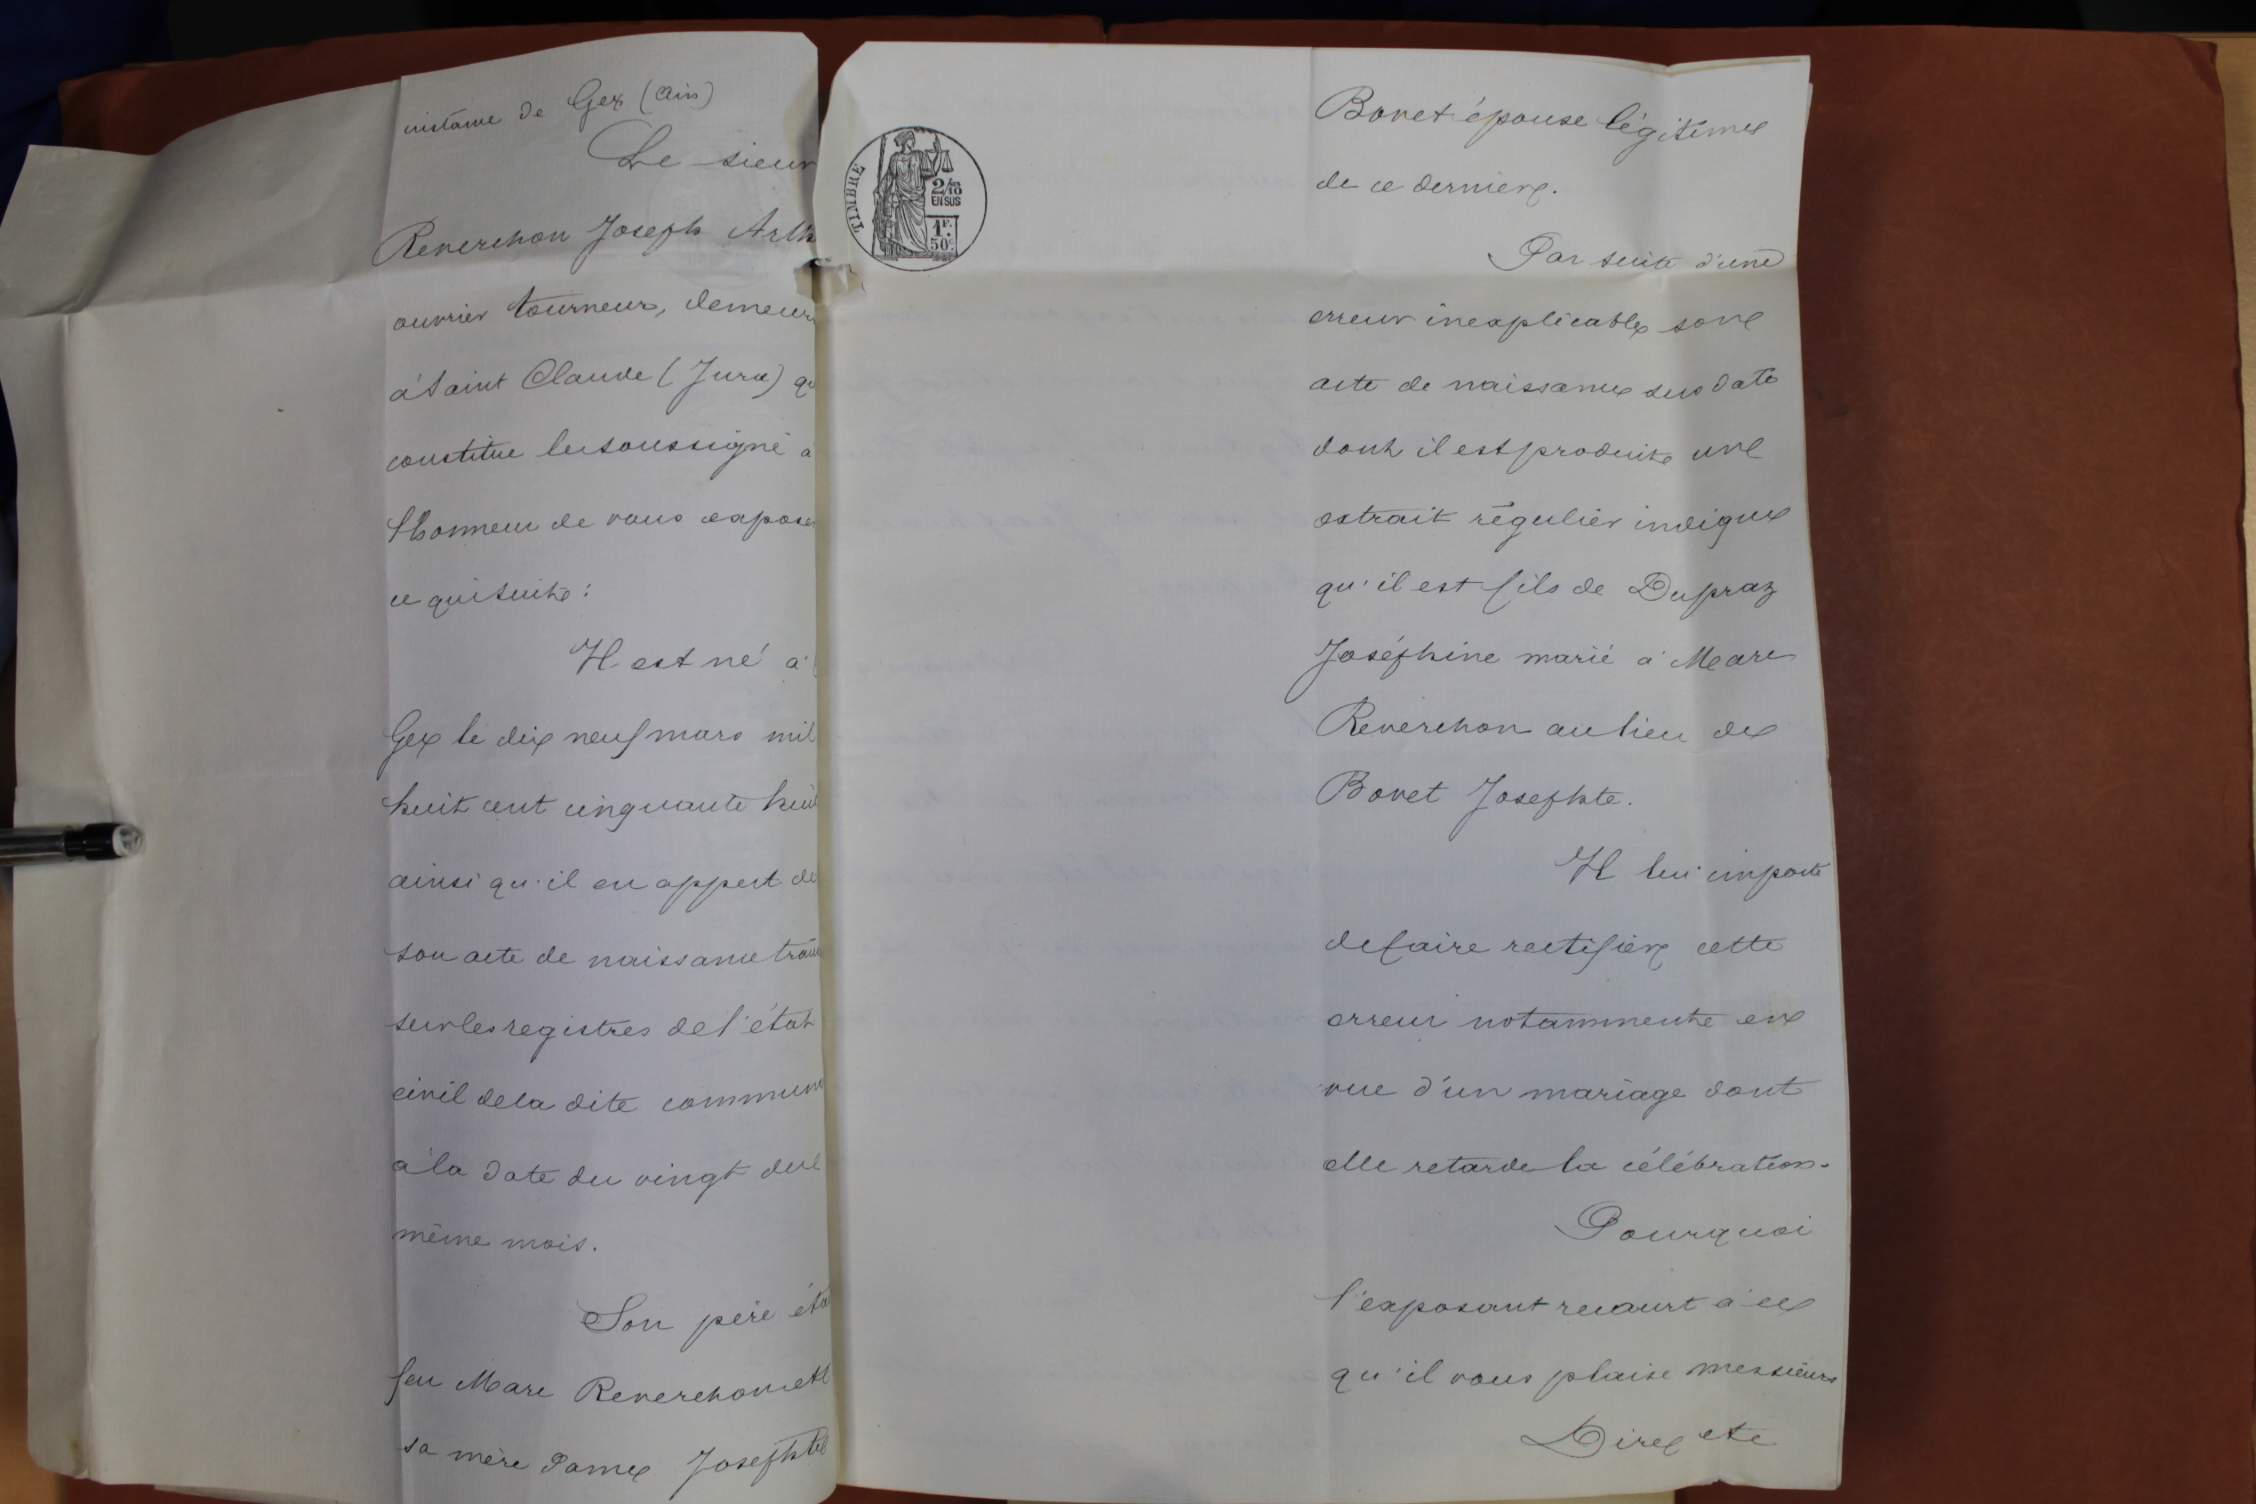 instance de Gex (Ain)
Le sieur
Reverchon Joseph Arth
ouvrier tourneur, demeur
à Saint Claude (Jura) qu
constitue le soussigné a
l'honneur de vous expose
ce qui suit :
Il est né à
Gex le dix neuf mars mil
huit cent cinquante hui
ainsi qu'il en appert de
son acte de naissance
sur les registres de l'état
civil de la dite commune
à la date du vingt du
même mois.
Son père éta
feu Marc Reverchon et
sa mère dame Josephte
TIMBRE
2/10
EN SUS
1F.
50c.
Bovet épouse légitime
de ce dernier.
Par suite d'une
erreur inexplicable son
acte de naissance sus daté
dont il est produit un
extrait régulier indique
qu'il est fils de Dupraz
Joséphine marié à Marc
Reverchon au lieu de
Bovet Josephte.
Il lui importe
de faire rectifier cette
erreur notamment en
vue d'un mariage dont
elle retarde la célébration.
Pourquoi
l'exposant recourt à ce
qu'il vous plaise messieurs
Dire etc